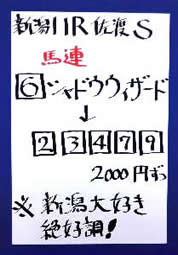 新潟11R 佐渡S
馬連
6 シャドウウィザード
↓
2 3 4 7 9
2000円ずつ
※ 新潟大好き
絶好調!